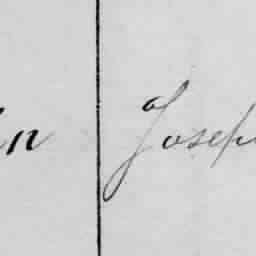 n Joseph